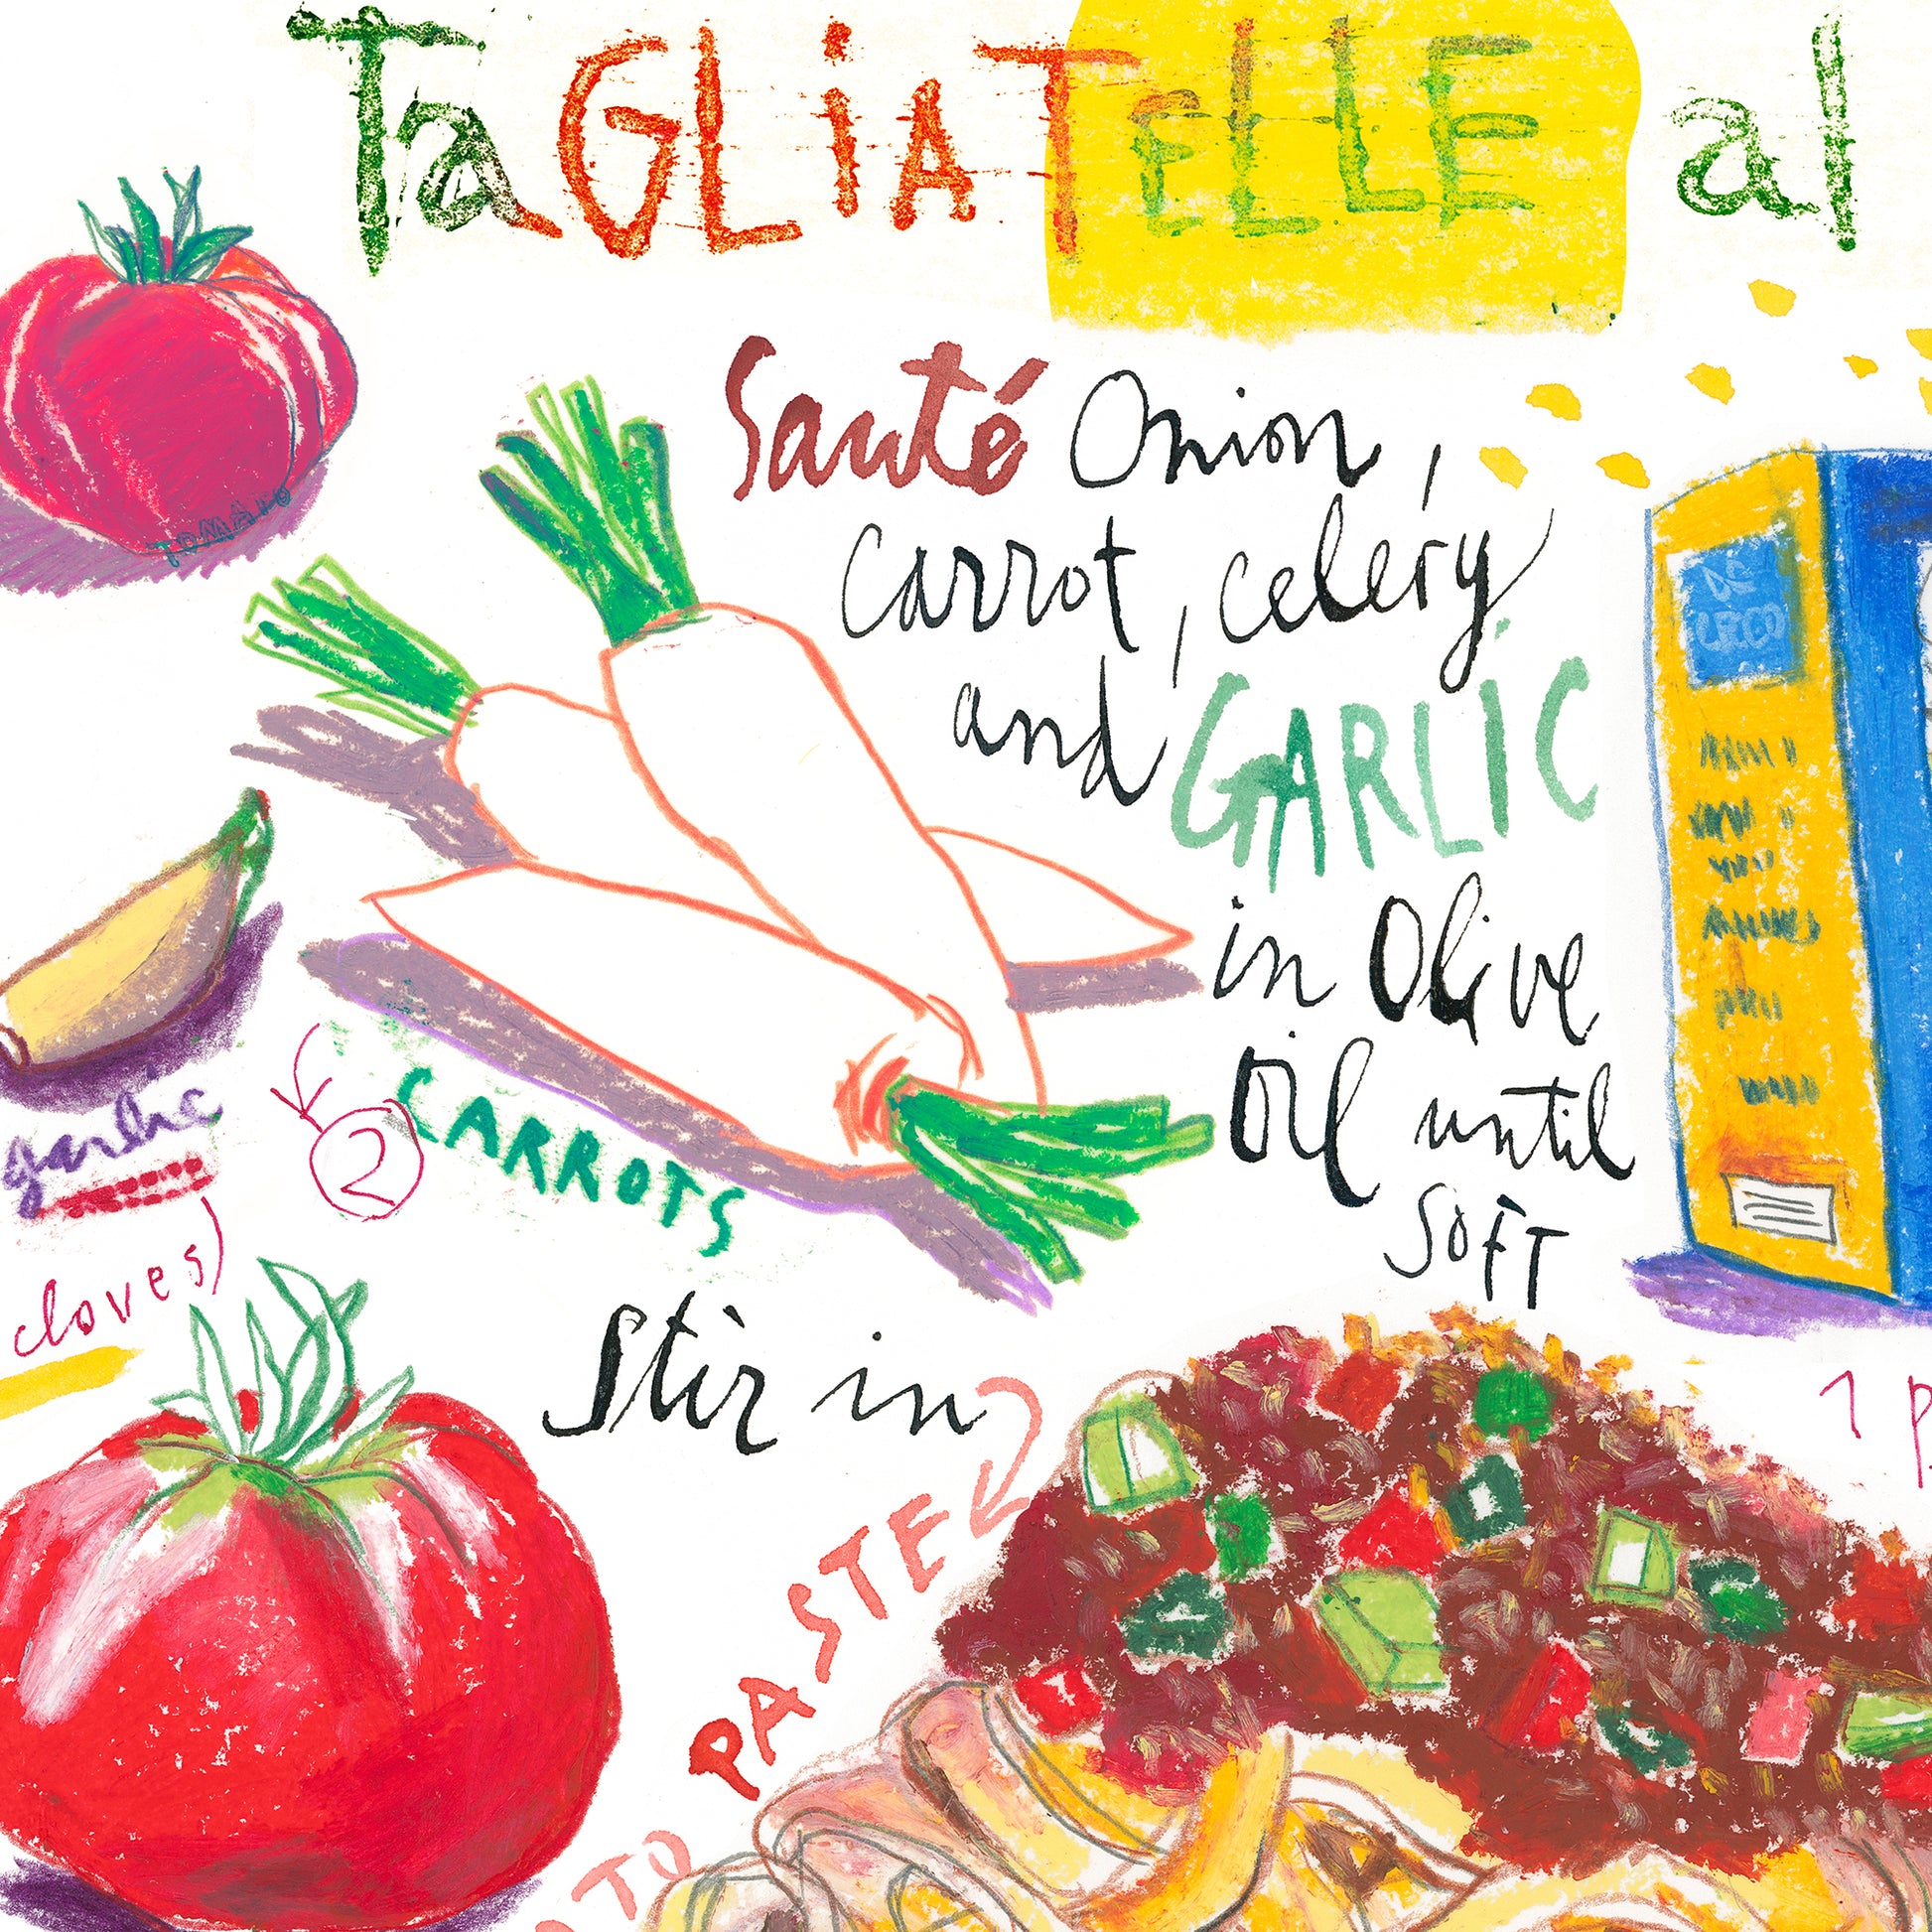 TaGLiATELLE al
TOMATO
Sauté Onion,
carrot, celery
and GARLiC
in Olive
Oil until
SOFT
DE
CECO
garlic
cloves)
2 CARROTS
Stir in
PASTE
1